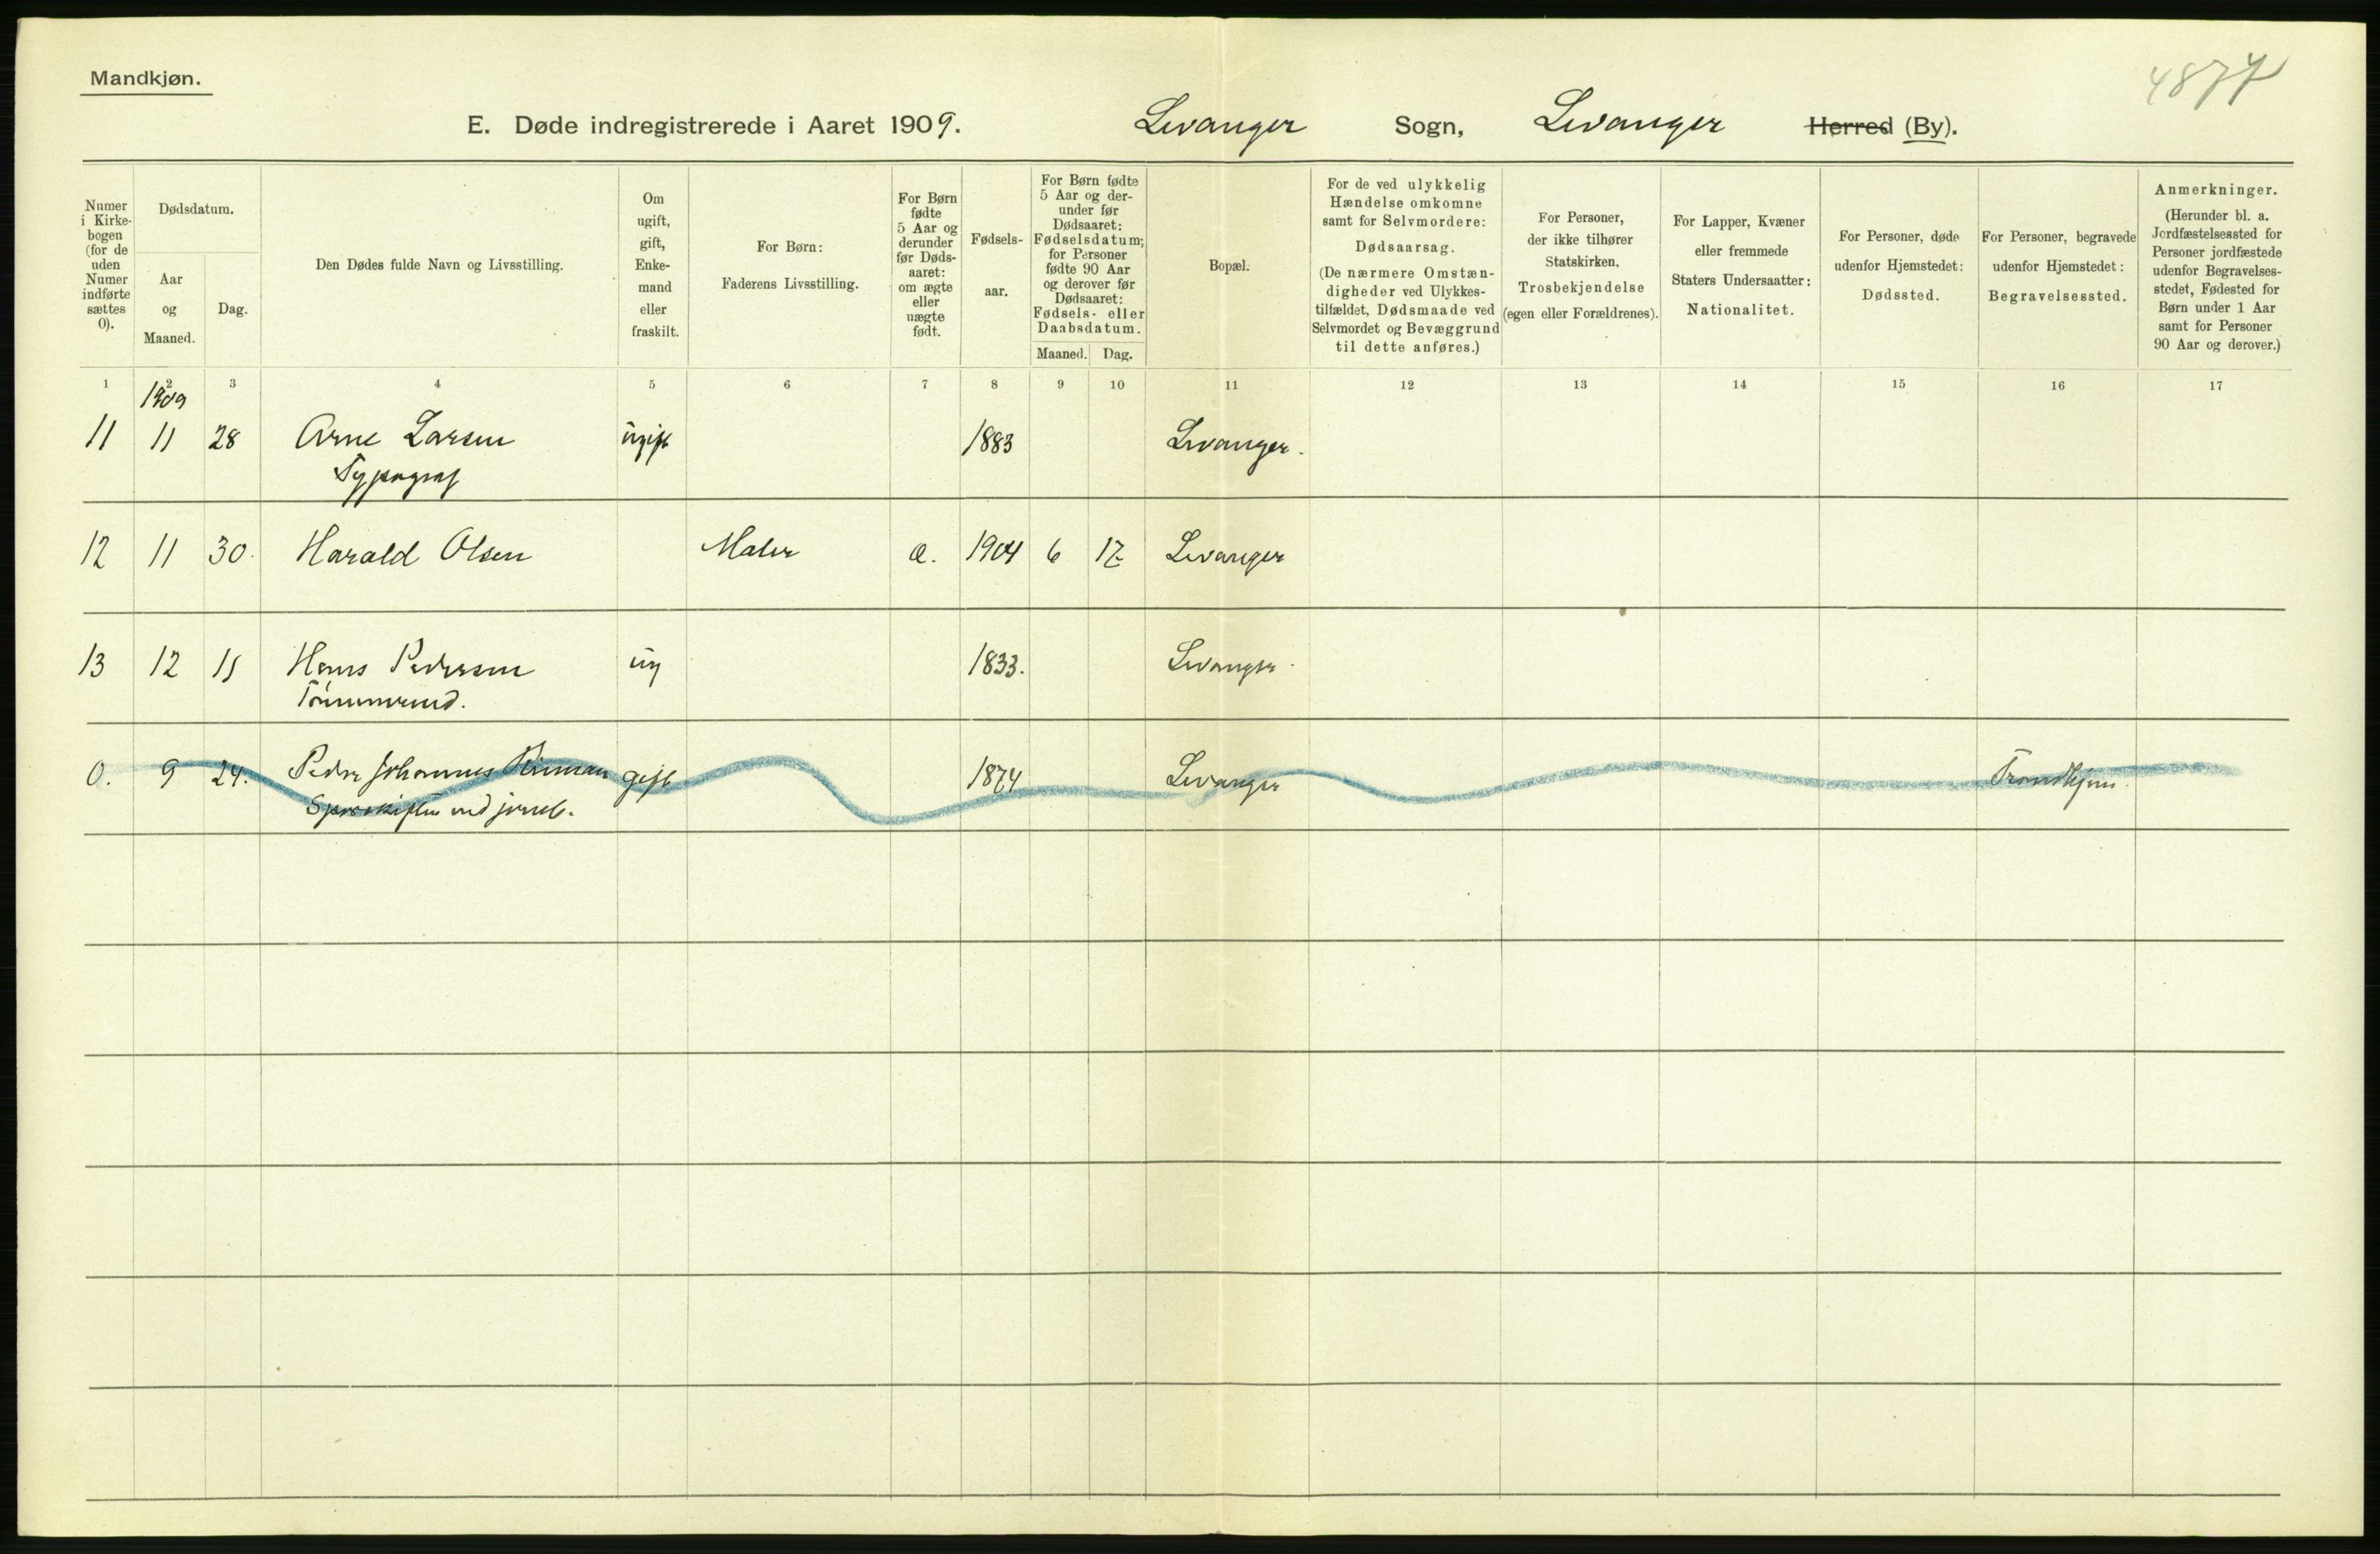 Mandkjøn.
4877
E. Døde indregistrerede i Aaret 1909. Levanger Sogn, Levanger Herred (By).
Numer i Kirkebogen (for de uden Numer indførte sættes 0).
Dødsdatum.
Aar og Maaned.
Dag.
Den Dødes fulde Navn og Livsstilling.
Om ugift, gift, Enkemand eller fraskilt.
For Børn: Faderens Livsstilling.
For Børn fødte 5 Aar og derunder før Dødsaaret: om ægte eller uægte født.
Fødselsaar.
For Børn fødte 5 Aar og derunder før Dødsaaret: Fødselsdatum; for Personer fødte 90 Aar og derover før Dødsaaret: Fødsels- eller Daabsdatum.
Maaned. Dag.
Bopæl.
For de ved ulykkelig Hændelse omkomne samt for Selvmordere: Dødsaarsag. (De nærmere Omstændigheder ved Ulykkestilfældet, Dødsmaade ved Selvmordet og Bevæggrund til dette anføres.)
For Personer, der ikke tilhører Statskirken, Trosbekjendelse (egen eller Forældrenes).
For Lapper, Kvæner eller fremmede Staters Undersaatter: Nationalitet.
For Personer, døde udenfor Hjemstedet: Dødssted.
For Personer, begravede udenfor Hjemstedet: Begravelsessted.
Anmerkninger. (Herunder bl. a. Jordfæstelsessted for Personer jordfæstede udenfor Begravelsesstedet, Fødested for Børn under 1 Aar samt for Personer 90 Aar og derover.)
1 2 3 4 5 6 7 8 9 10 11 12 13 14 15 16 17
1909
11 11 28 Arne Larsen ugift 1883 Levanger.
Typograf
12 11 30. Harald Olsen Maler æ. 1904 6 12 Levanger
13 12 15 Hans Pedersen ug 1833. Levanger.
Tømmermd.
0. 9 24. Peder Johannes gift 1874 Levanger Trondhjem.
Sporskifter ved jernb.